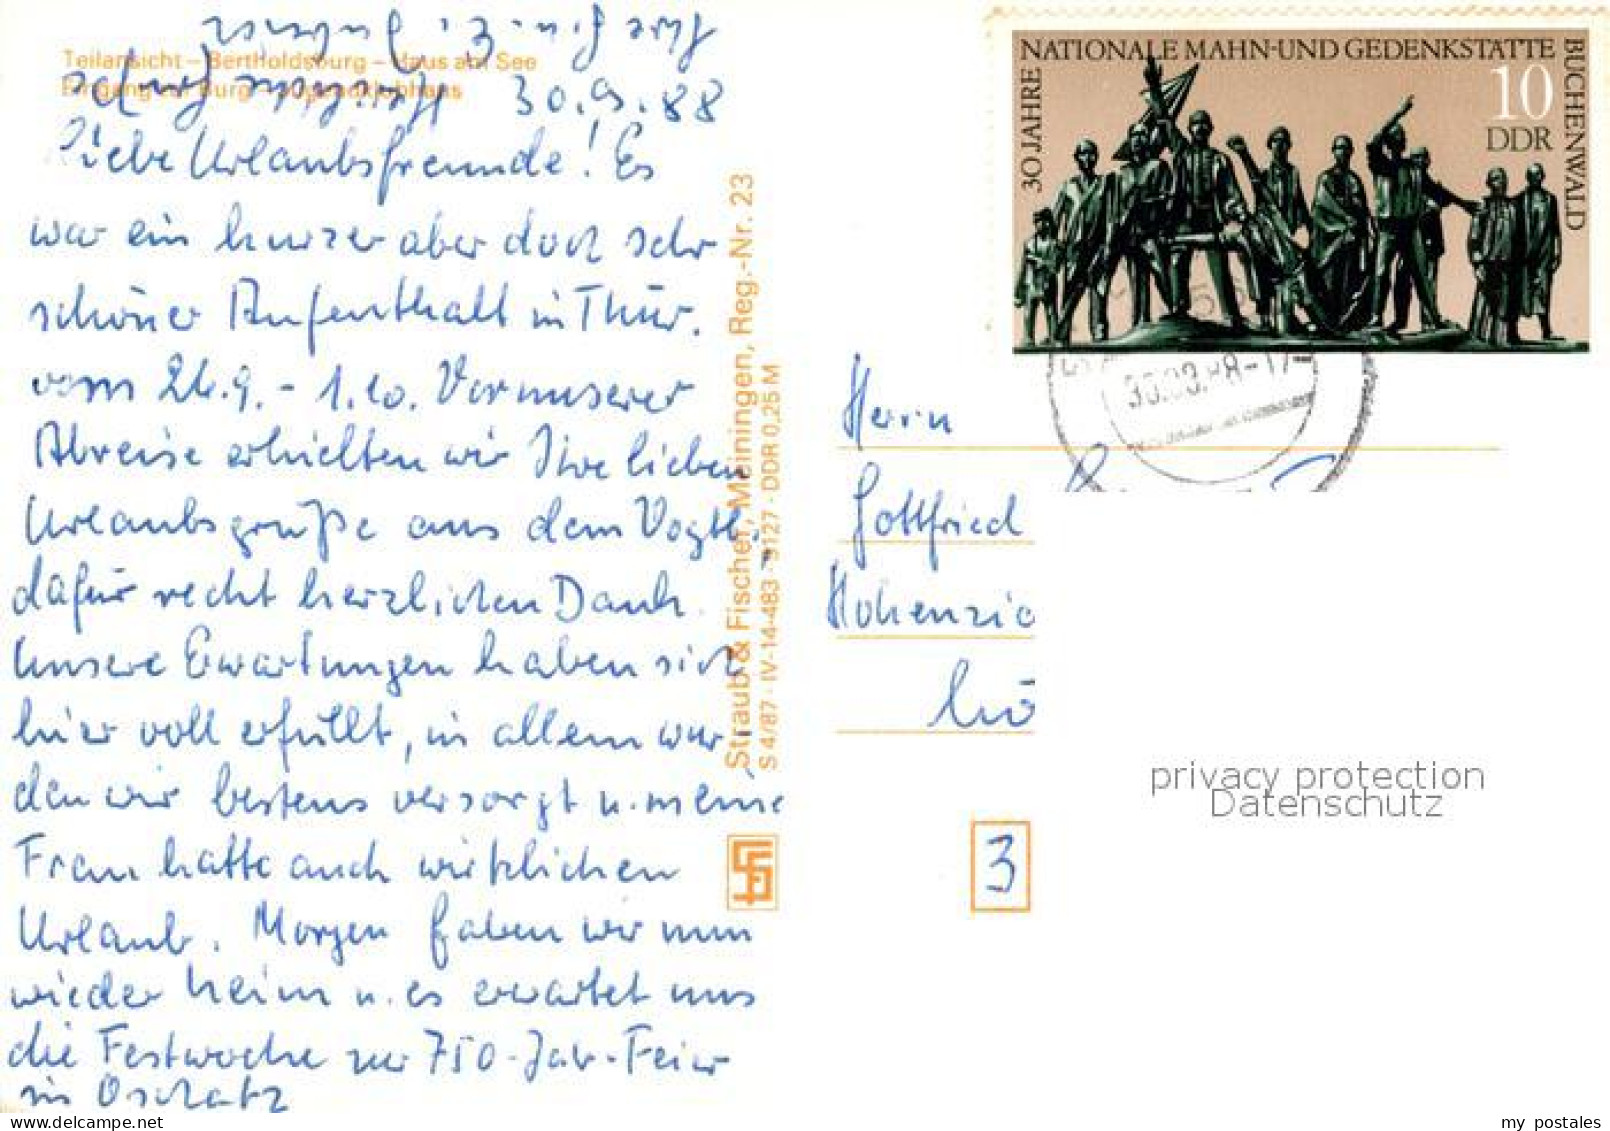 Teilansicht – Bertholdsburg – Haus am See
Eingang zur Burg – Jugendklubhaus
30.9.88
Liebe Urlaubsfreunde! Es
war ein kurzer aber doch sehr
schöner Aufenthalt in Thür.
vom 26.9. - 1.10. Vor unserer
Abreise erhielten wir Ihre lieben
Urlaubsgrüße aus dem Vogtl.,
dafür recht herzlichen Dank.
Unsere Erwartungen haben sich
hier voll erfüllt, in allem wur-
den wir bestens versorgt u. meine
Frau hatte auch wirklichen
Urlaub. Morgen fahren wir nun
wieder heim u. es erwartet uns
die Festwoche zur 750-Jahr-Feier
in Oschatz
Straub & Fischer, Meiningen, Reg.-Nr. 23
S 4/87 · IV-14-483 · 9127 · DDR 0,25 M
30 JAHRE NATIONALE MAHN-UND GEDENKSTÄTTE BUCHENWALD
10
DDR
30.09.88-17
Herrn
Gottfried
3
privacy protection
Datenschutz
my postales